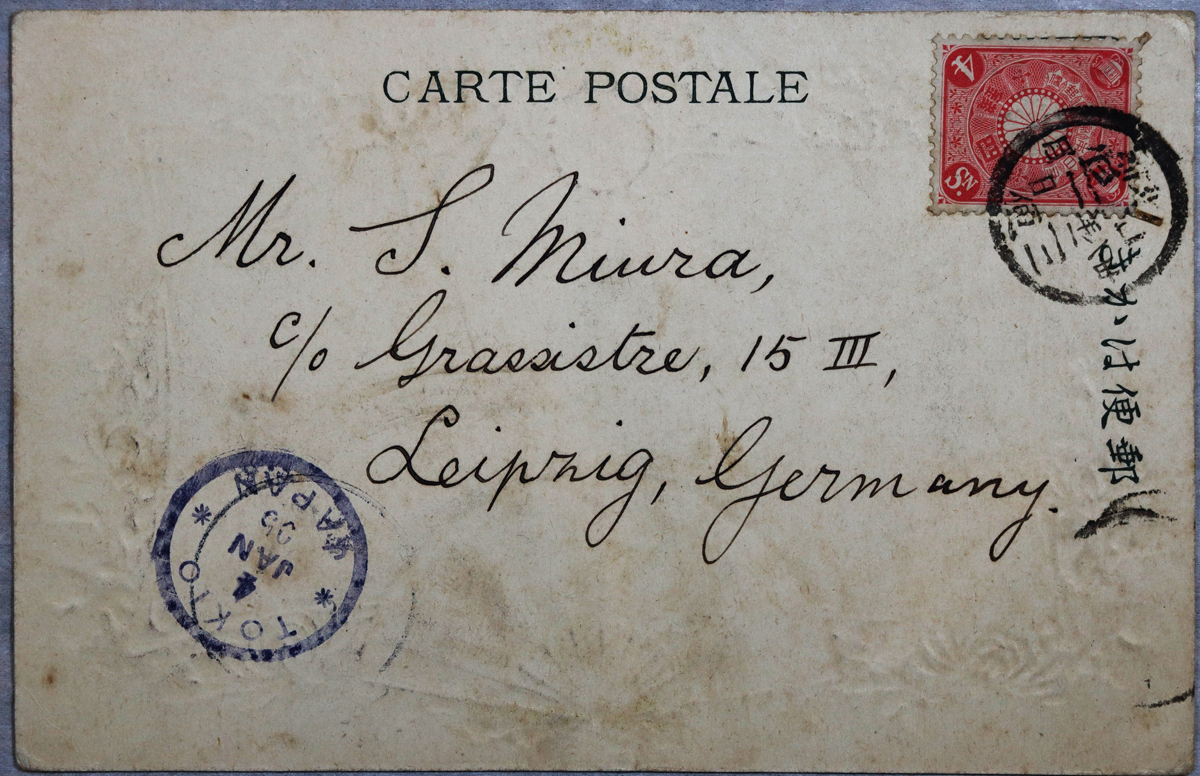 CARTE POSTALE
4
SN.
Mr. S. Miura,
c/o Grassistre, 15 III,
Leipzig, Germany.
郵便はかき
TOKIO
4
JAN
05
JAPAN